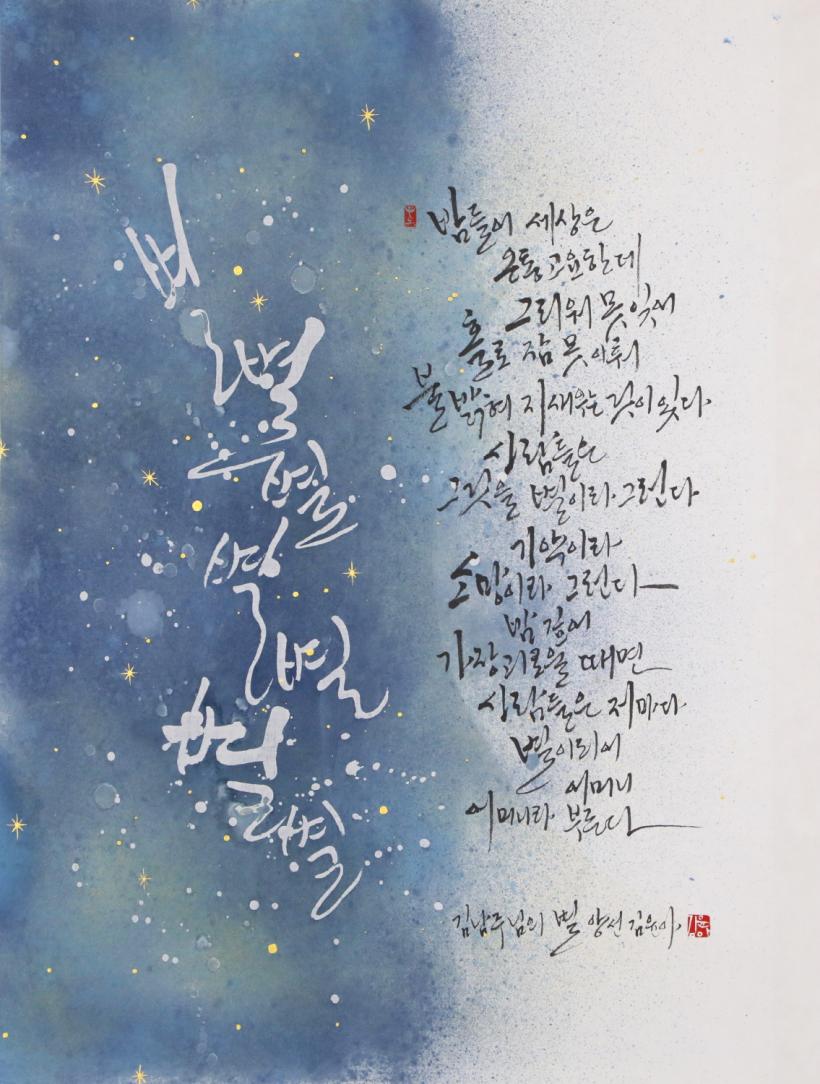 별
별
별
별
별
별
별
밤들어 세상은
온통 고요한데
그리워 못잊어
홀로 잠 못 이뤄
불밝혀 지새우는 것이 있다
사람들은
그것을 별이라 그런다
기약이라
소망이라 그런다
밤 깊어
가장 괴로울 때면
사람들은 저마다
별이되어
어머니
어머니라 부른다
김남주님의 별 양선 김윤아